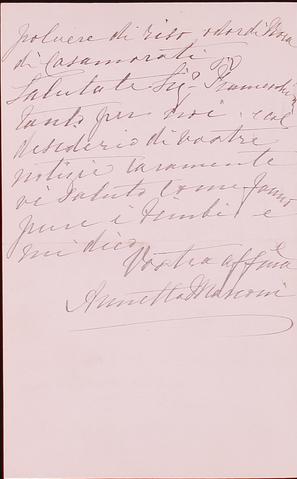 polvere di riso, odor di Rosa
di Casamorati.
Salutate Sigr
tanto per noi. e col
desiderio di vostre
notizie caramente
vi saluto come fanno
pure i bimbi e
mi dico
Vostra affma
Annetta Marconi